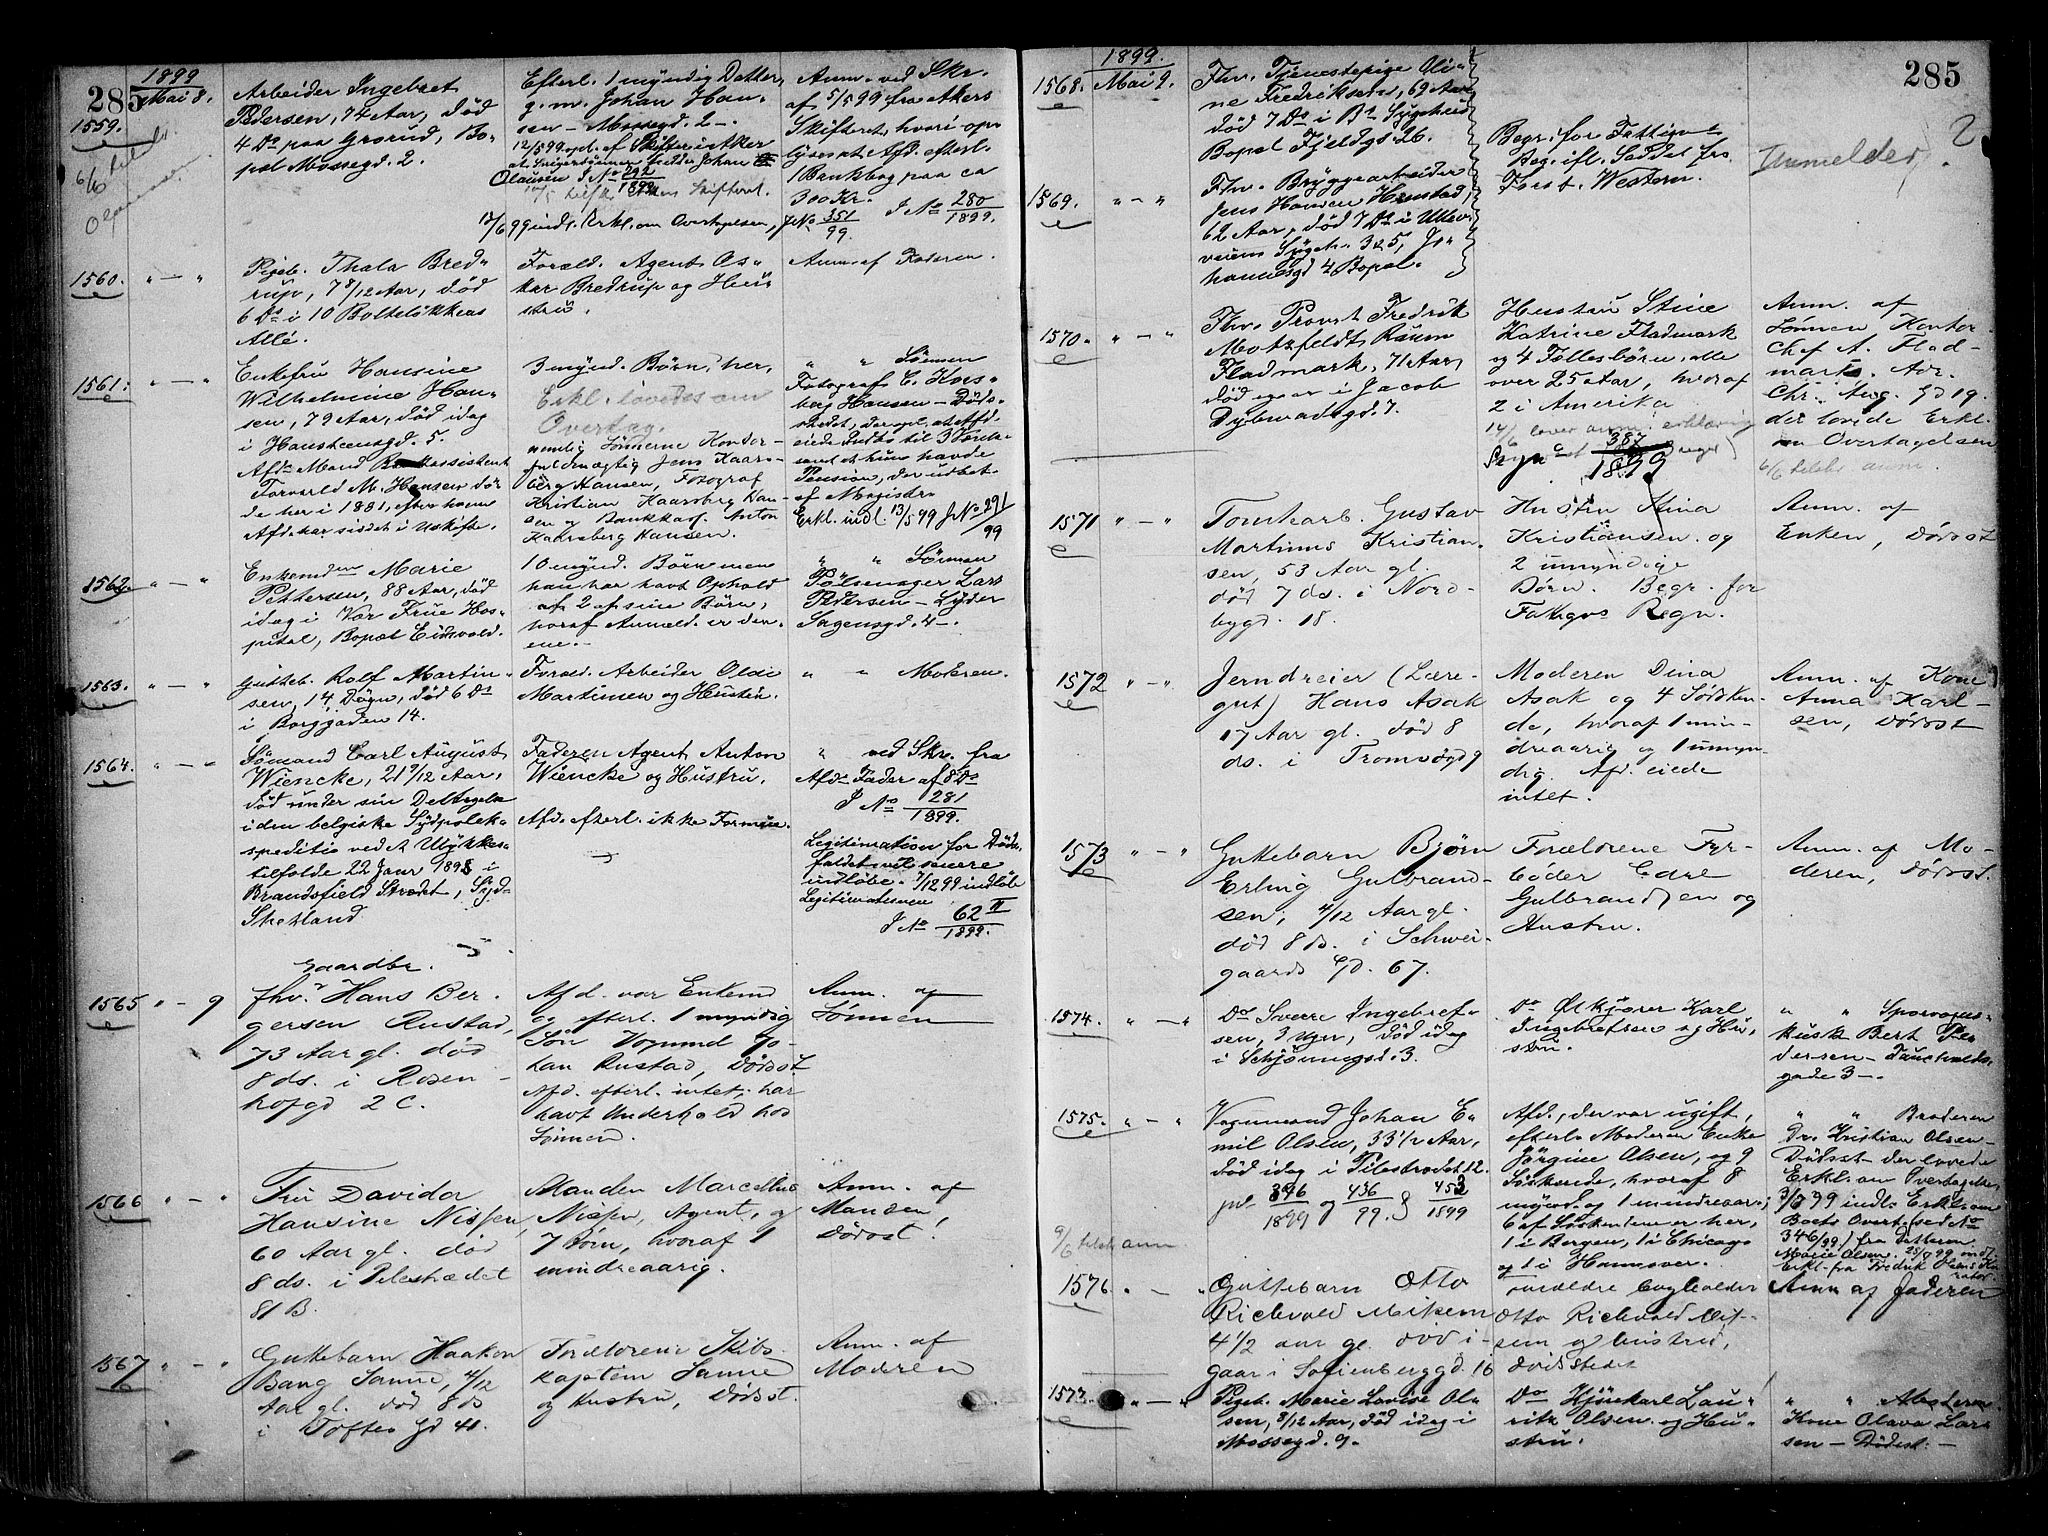 285
1899
Mai 8.
1559.
Arbeider Ingebret
Pedersen, 74 Aar, död
4 Ds paa Grorud, Bo-
pæl Mossegd. 2.
Efterl. 1 myndig Datter,
g. m. Johan Han-
sen – Mossegd. 2 –.
12/5 99 opl. af Skifter i Aker
at Svigersönnen hedder Johan
Olausen J No 292/1899
13/6 99 indl. Erkl. om Overtagelsen, J No 351/99.
Anm. ved Skr.
af 5/5 99 fra Akers
Skifteret, hvori op-
lyses at Afd. efterl.
1 Bankbog paa ca
300 Kr. J No 280/1899.
1560. " – "
Pigeb. Thala Bred-
rup, 7 8/12 Aar, död
6 Ds i 10 Boltelökkens
Allé.
Foræld. Agent Os-
kar Bredrup og Hu-
stru.
Anm. af Faderen.
1561. " – "
Enkefru Hansine
Wilhelmine Han-
sen, 79 Aar, död idag
i Hausteensgd. 5.
Afds Mand
Forvald M. Hansen dö-
de her i 1881, efter hvem
Afd. har siddet i Uskifte.
3 mynd. Börn, her,
Erkl. lovedes om
Overtag.
nemlig Sönnerne Kontor-
fuldmægtig Jens Kaars-
berg Hansen, Fotograf
Kristian Kaarsberg Han-
sen og Bankkas. Anton
Kaarsberg Hansen.
" " Sönnen
Fotograf C. Kors-
berg Hansen – Döds-
stedet,
Pension, der udbet-
af Magistr.
Erkl. indl. 13/5 99 J No 291/99
1562. " – "
Enkemdm Marie
Pettersen, 88 Aar, död
idag i Vor Frue Hos-
pital, Bopæl Eidsvold.
10 mynd. Börn, men
hun har havt Ophold
af 2 af sine Börn,
hvoraf Anmeld. er den
ene. –
" " Sönnen
Pölsemager Lars
Pedersen – Lyder
Sagensgd. 4 –.
1563. " – "
Gutteb. Rolf Martin-
sen, 14 Dögn, död 6 Ds
i Borggaden 14.
Foræld. Arbeider Olai
Martinsen og Hustru.
" " Moderen.
1564. " – "
Sömand Carl August
Wiencke, 21 9/12 Aar,
död under sin Deltagelse
i den belgiske Sydpoleks-
pedition ved et Ulykkes-
tilfælde 22 Janr 1898 i
Bransfield Strædet, Syd-
Shetland
Faderen Agent Anton
Wiencke og Hustru.
Afd. efterl. ikke Formue.
" ved Skr. fra
Afds Fader af 8 Ds
J No 281/1899.
Legitimation for Döds-
faldet vil senere
indlöbe. 7/12 99 indlöb
Legitimationen
J No 62 II/1899.
1565 " – 9
Gaardbr.
fhv. Hans Ber-
gersen Rustad,
73 Aar gl. död
8 ds. i Rosen-
hofgd 2 C.
Afd. var Enkemd
og efterl. 1 myndig
Sön Vognmd Jo-
han Rustad, Dödsst
Afd. efterl. intet; har
havt Underhold hos
Sönnen.
Anm. af
Sönnen
1566 " – "
Fru Davida
Hansine Nissen,
60 Aar gl. död
8 ds. i Pilestrædet
81 B.
Manden Marcellius
Nissen, Agent, og
7 Börn, hvoraf 1
mindreaarig.
Anm. af
Manden,
Dödsst.
1567 " – "
Guttebarn Haakon
Bang Sanne, 4/12
Aar gl. död 8 ds
i Toftes Gd 41.
Forældrene Skibs-
kaptein Sanne
og Hustru, Dödsst.
Anm. af
Moderen
285
1899.
1568. Mai 9.
Fhv. Tjenestepige Oli-
ne Fredriksen, 69 Aar,
död 7 Ds i Bs Sygehus
Bopæl Fjeldgd. 26.
Begr. for Fattigv.
Reg. ifl. Seddel fra
Forst. Western.
Anmelder,
?
1569. " – "
Fhv. Bryggearbeider
Jens Hansen Hemstad,
62 Aar, död 7 Ds i Ullev.
veiens Sygeh. 3 & 5, Jo-
hannesgd 4 Bopæl.
1570. " – "
Fhv. Provst Fredrik
Motzfeldt Raum
Fladmark, 71 Aar,
död igaar i Jacob
Dybwadsgd. 7.
Hustru Stine
Katrine Fladmark
og 4 Fællesbörn, alle
over 25 Aar, hvoraf
2 i Amerika
14/6 lover anm. erklæring
387/1899
Anm. af
Sönnen Kontor-
chef A. Flad-
mark. Adr.
Chr. Aug. Gd 19.
der lovede Erkl.
om Overtagelsen
6/6 telef. anm.
1571 " – "
Tomtearb. Gustav
Martinus Kristian-
sen, 53 Aar gl.
död 7 ds. i Nord-
bygd. 15.
Hustru Stina
Kristiansen og
2 umyndige
Börn. Begr. for
Fattigvs Regn.
Anm. af
Enken, Dödsst
1572 " – "
Jerndreier (Lære-
gut) Hans Asak
17 Aar gl. död 8
ds. i Tromsögd 9
Moderen Dina
Asak og 4 Södsken-
de, hvoraf 1 min-
dreaarig og 1 umyn-
dig. Afd. eiede
intet.
Anm. af Kone
Anna Karl-
sen, Dödsst
1573 " – "
Guttebarn Björn
Erling Gulbrand-
sen, 4/12 Aar gl.
död 8 ds. i Schwei-
gaards Gd. 67.
Forældrene Fyr-
böder Carl
Gulbrandsen og
Hustru.
Anm. af Mo-
deren, Dödsst.
1574. " – "
Do Sverre Ingebret-
sen, 3 Uger, död idag
i Schjönningsd. 3.
Do Ölkjörer Karl
Ingebretsen og Hu-
stru.
" " Sporvogns-
kusk Bert Pe-
dersen –
gade 3 –.
1575. " – "
Vognmand Johan E-
mil Olsen, 33 1/2 Aar,
död idag i Pilestrædet 12.
jnl. 396/1899 og 436/99. & 453/1899
9/6 telef. anm
Afd., der var ugift,
efterl. Moderen Enke
Jörgine Olsen, og 9
Södskende, hvoraf 8
mynd. og 1 mindreaar.;
6 af Södskendene er her,
1 i Bergen, 1 i Chicago
og 1 i Hannover.
" " Broderen
Dr. Kristian Olsen –
Dödsst – der lovede
Erkl. om Overtagelse,
3/7 99 indl. Erkl. om
Boets Overt. (sed No
346/99) fra Datteren
Marie Olsen. 25/7 99 indl.
Erkl. fra Fredrik
1576. " – "
Guttebarn Otto
Richvald Meksem
4 1/2 aar gl. död i-
gaar i Sofienberggd. 16
Forældre bogholder
Otto Richvald
sem og hustru,
dödsstedet
Anm af faderen
1577. " – "
Pigeb. Marie Lovise Ol-
sen, 8/12 Aar, död idag i
Mossegd. 9.
Do Hjörekarl Lau-
ritz Olsen og Hu-
stru.
" "
Kone Olava Lar-
sen – Dödsst. –